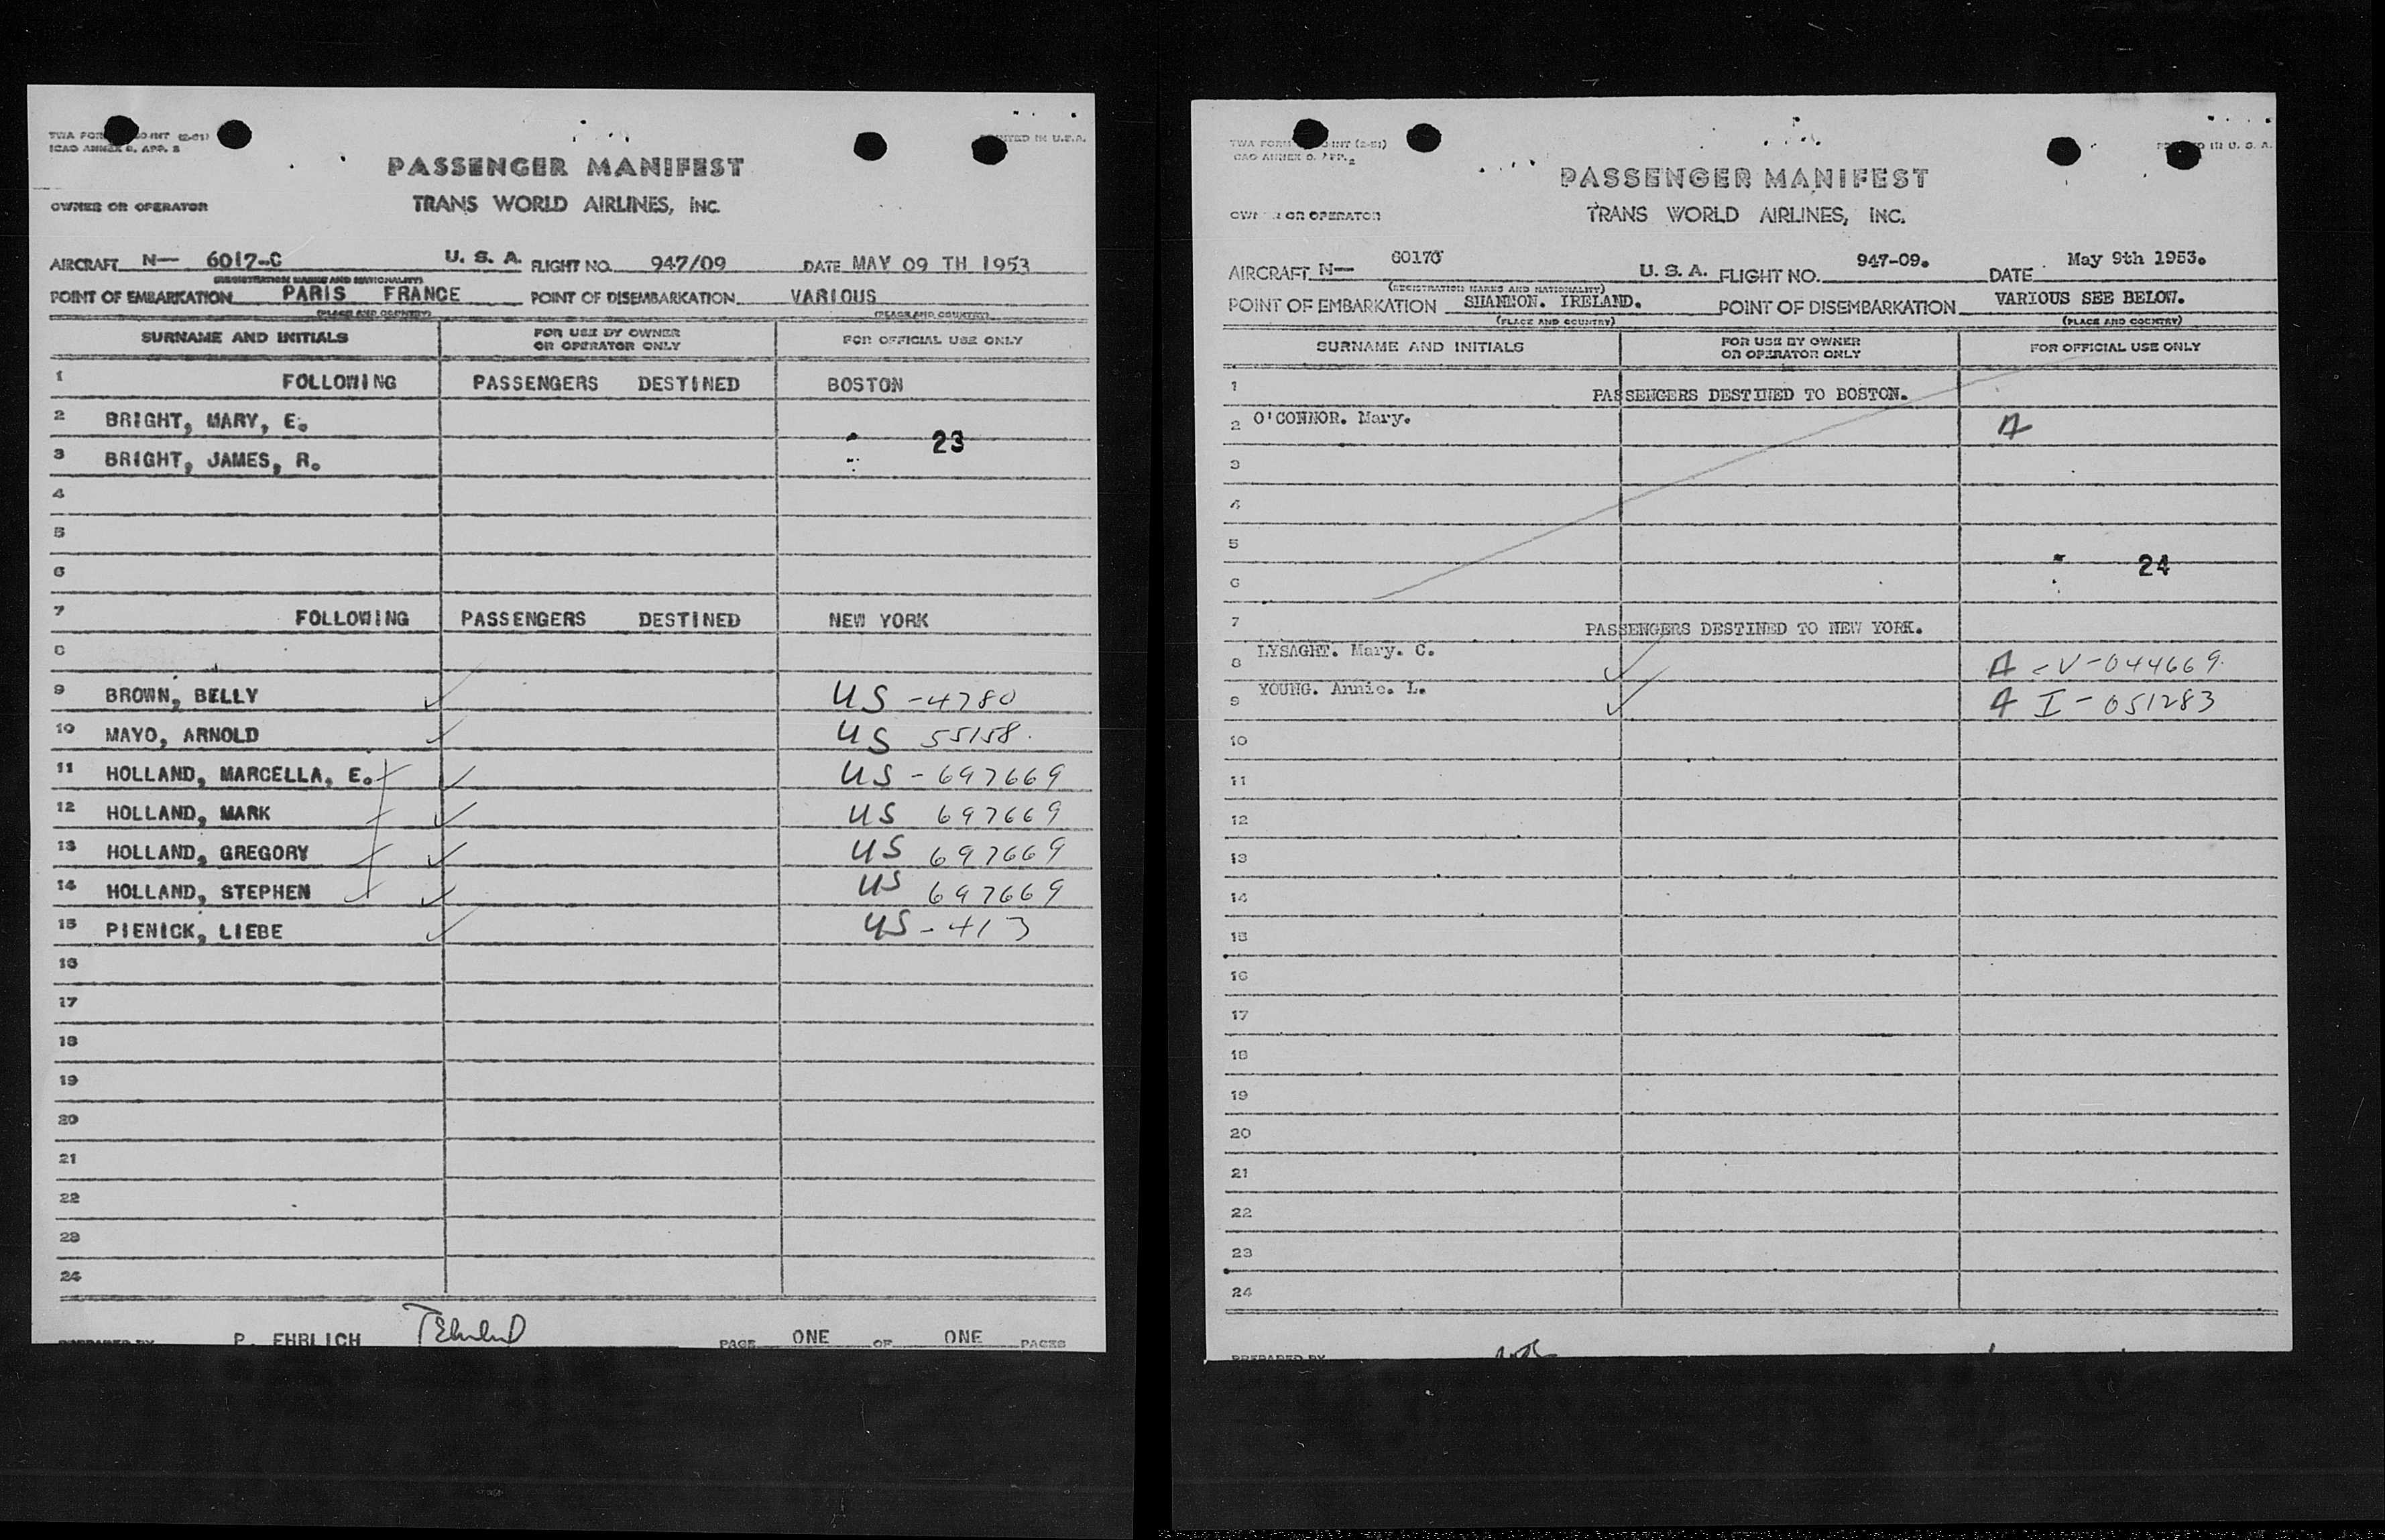 TWA FORM INT (2-51)
ICAO ANNEX 9, APP. 2
PRINTED IN U.S.A.
PASSENGER MANIFEST
OWNER OR OPERATOR TRANS WORLD AIRLINES, INC.
AIRCRAFT N— 6017-C U. S. A. FLIGHT NO. 947/09 DATE MAY 09 TH 1953
(REGISTRATION MARKS AND NATIONALITY)
POINT OF EMBARKATION PARIS FRANCE POINT OF DISEMBARKATION VARIOUS
(PLACE AND COUNTRY) (PLACE AND COUNTRY)
SURNAME AND INITIALS FOR USE BY OWNER OR OPERATOR ONLY FOR OFFICIAL USE ONLY
1 FOLLOWING PASSENGERS DESTINED BOSTON
2 BRIGHT, MARY, E.
23
3 BRIGHT, JAMES, R.
4
5
6
7 FOLLOWING PASSENGERS DESTINED NEW YORK
8
9 BROWN, BELLY US -4780
10 MAYO, ARNOLD US 55158.
11 HOLLAND, MARCELLA, E. US - 697669
12 HOLLAND, MARK US 697669
13 HOLLAND, GREGORY US 697669
14 HOLLAND, STEPHEN US 697669
15 PIENICK, LIEBE US - 413
16
17
18
19
20
21
22
23
24
PREPARED BY P. EHRLICH PAGE ONE OF ONE PAGES
TWA FORM INT (2-51)
ICAO ANNEX 9, APP. 2
PRINTED IN U. S. A.
PASSENGER MANIFEST
OWNER OR OPERATOR TRANS WORLD AIRLINES, INC.
AIRCRAFT N— 6017C U. S. A. FLIGHT NO. 947-09. DATE May 9th 1953.
(REGISTRATION MARKS AND NATIONALITY)
POINT OF EMBARKATION SHANNON. IRELAND. POINT OF DISEMBARKATION VARIOUS SEE BELOW.
(PLACE AND COUNTRY) (PLACE AND COUNTRY)
SURNAME AND INITIALS FOR USE BY OWNER OR OPERATOR ONLY FOR OFFICIAL USE ONLY
1 PASSENGERS DESTINED TO BOSTON.
2 O'CONNOR. Mary. A
3
4
5
24
6
7 PASSENGERS DESTINED TO NEW YORK.
8 LYSAGHT. Mary. C. A - V-044669.
9 YOUNG. Annie. L. A I - 051283
10
11
12
13
14
15
16
17
18
19
20
21
22
23
24
PREPARED BY